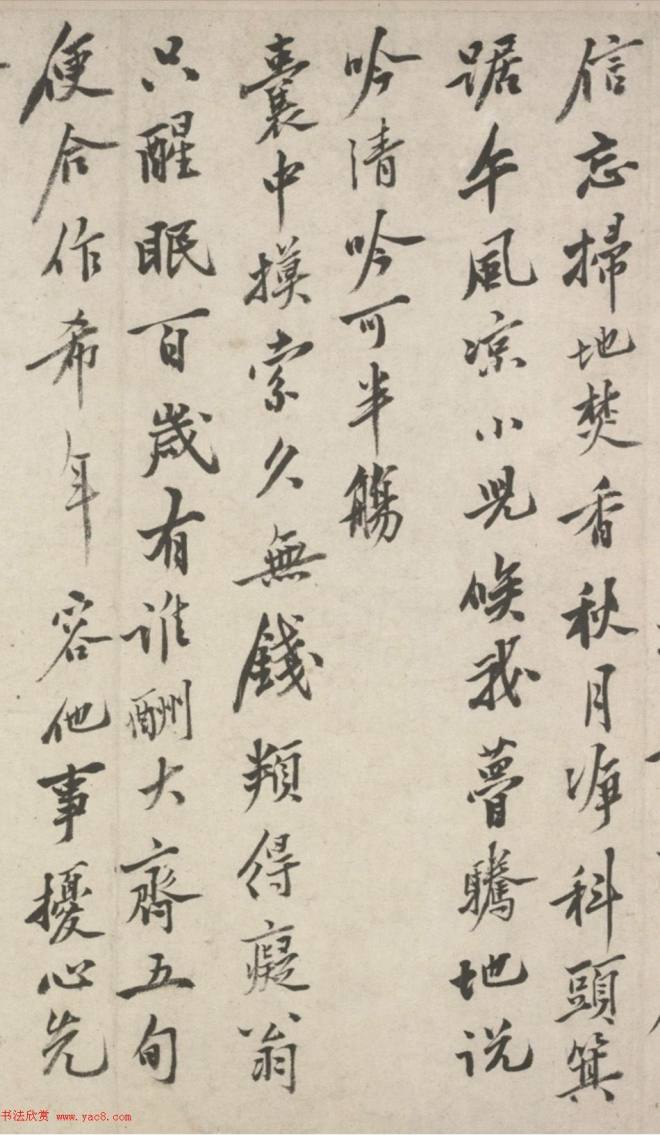 信忘掃地焚香秋月淨科頭箕
踞午風凉小児候我瞢騰地说
吟清吟可半觴
囊中摸索久無錢頻得癡翁
只醒眠百歲有谁酬大齋五旬
便合作希年容他事擾心先
书法欣赏 www.yac8.com